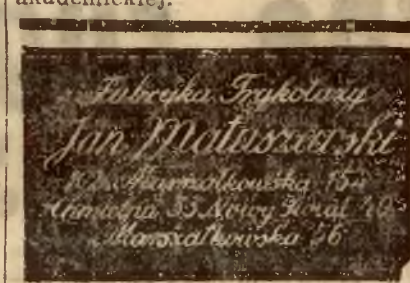 akademickiej.
Fabryka Trykotaży
Jan Matuszewski
Marszałkowska 154
Chmielna 33. Nowy Świat 40
Marszałkowska 56